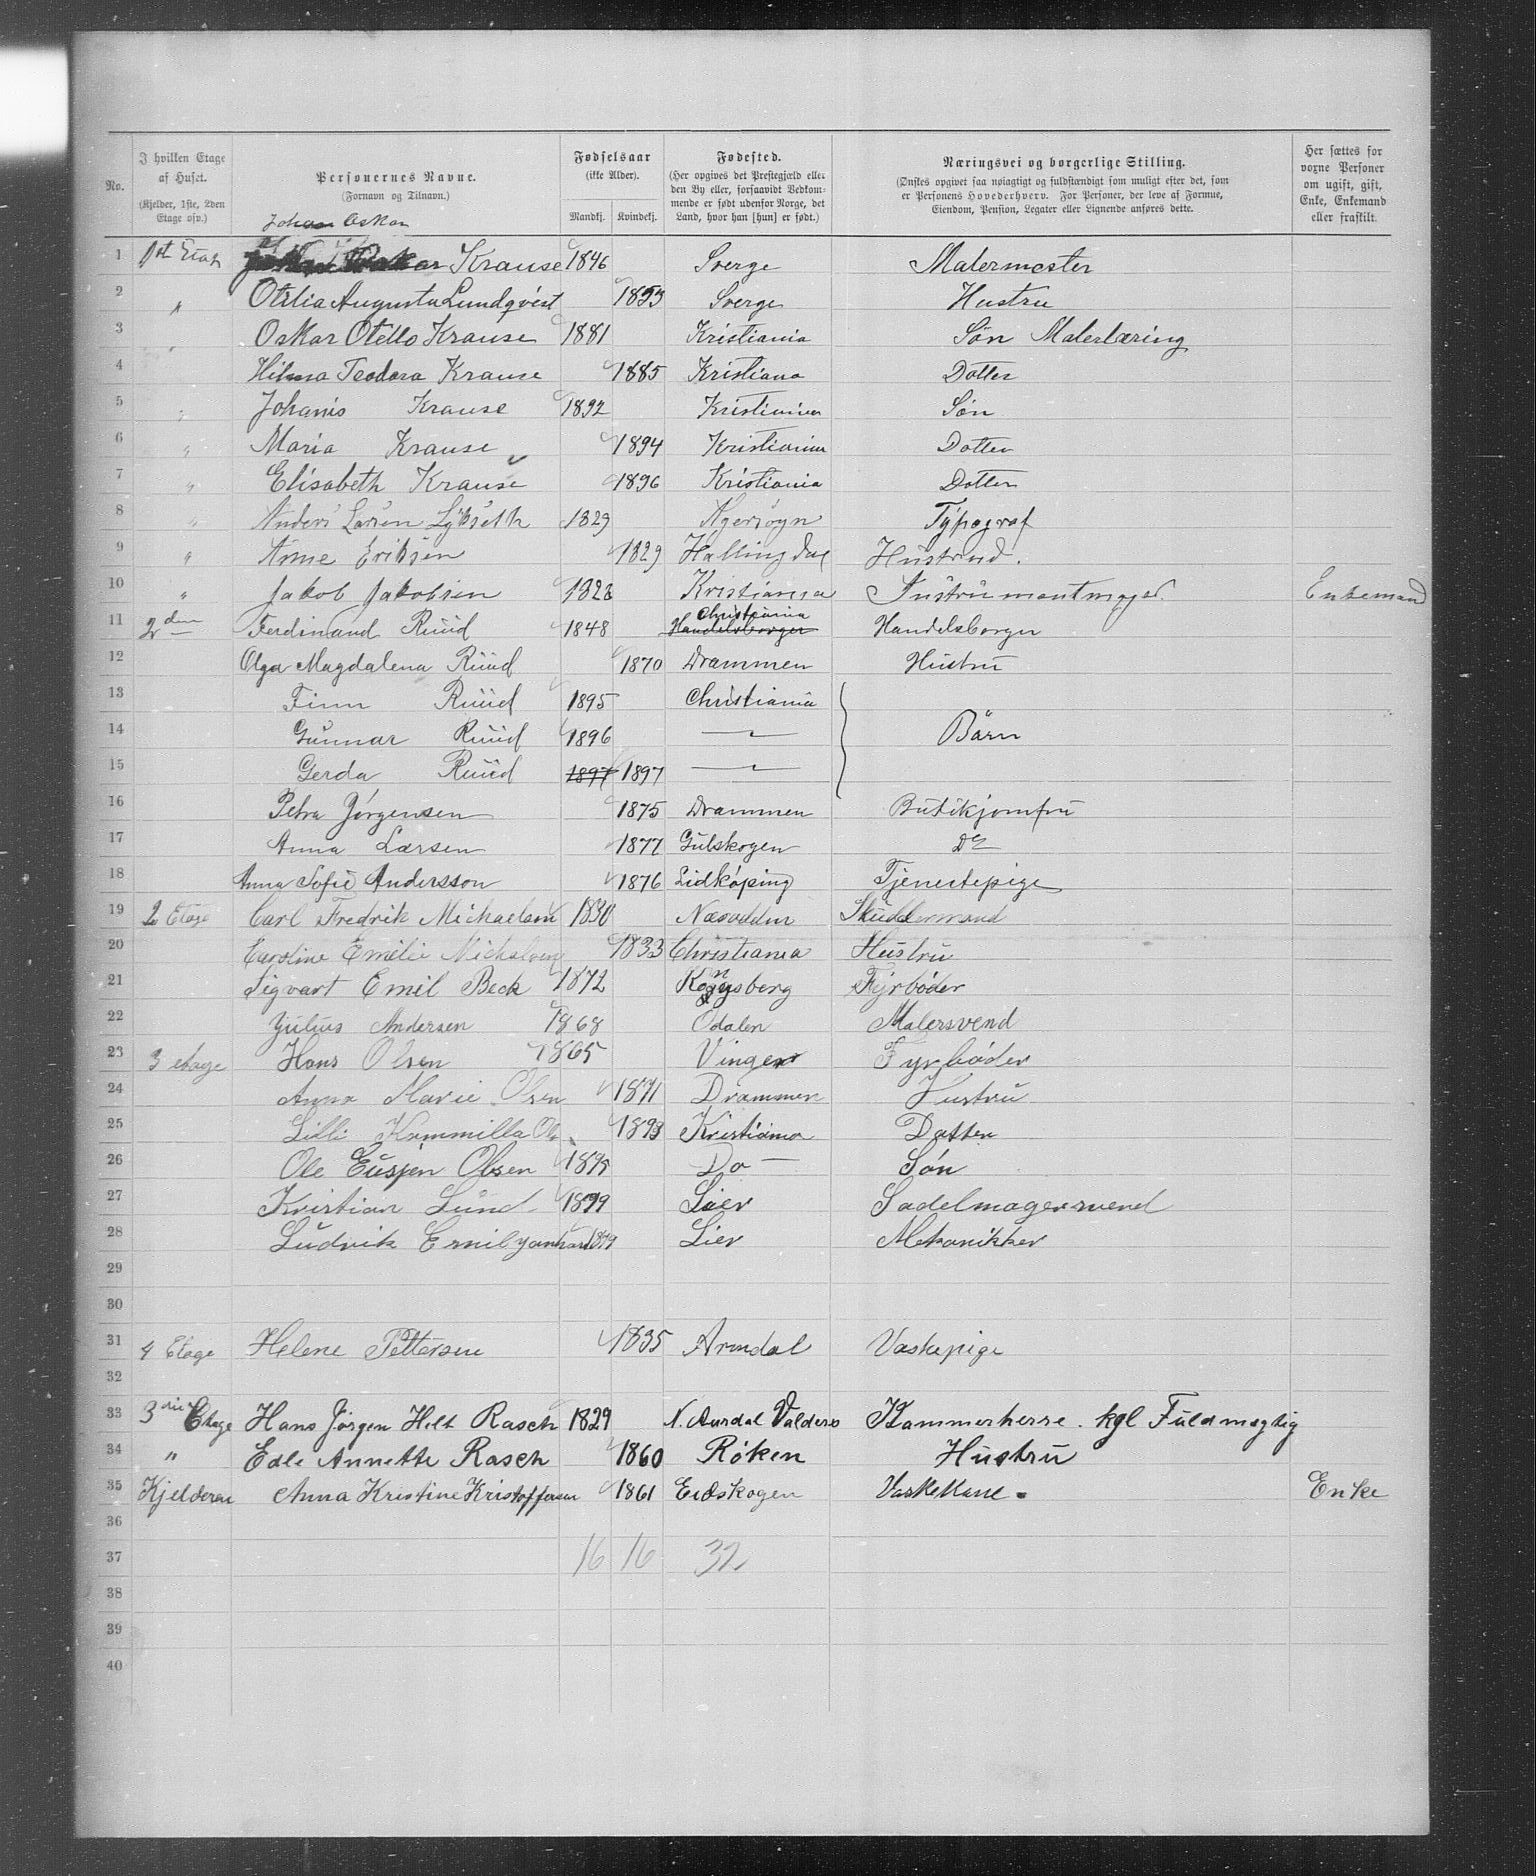 No. | I hvilken Etage af Huset. (Kjelder, 1ste, 2den Etage osv.) | Personernes Navne. (Fornavn og Tilnavn.) | Fødselsaar (ikke Alder). Mandkj. Kvindekj. | Fødested. (Her opgives det Prestegjæld eller den By eller, forsaavidt Vedkommende er født udenfor Norge, det Land, hvor han [hun] er født.) | Næringsvei og borgerlige Stilling. (Ønskes opgivet saa nøiagtigt og fuldstændigt som muligt efter det, som er Personens Hovederhverv. For Personer, der leve af Formue, Eiendom, Pension, Legater eller Lignende anføres dette. | Her sættes for voxne Personer om ugift, gift, Enke, Enkemand eller fraskilt.
Johan Oskar
1 1st Etage Krause 1846 Sverge Malermester
2 " Otilia Augusta Lundqvist 1853 Sverge Hustru
3 " Oskar Otello Krause 1881 Kristiania Søn Malerlæring
4 Hilma Teodora Krause 1885 Kristiana Datter
5 " Johanis Krause 1892 Kristiania Søn
6 " Maria Krause 1894 Kristiania Datter
7 " Elisabeth Krause 1896 Kristiania Datter
8 " Anders Larsen Lykseth 1829 Agersogn Typograf
9 " Anne Eriksen 1829 Hallingdal Hustrud.
10 " Jakob Jakobsen 1828 Kristiania Instrumentmager Enkemand
11 2den Ferdinand Ruud 1848 Handelsborger Christiania Handelsborger
12 Olga Magdalena Ruud 1870 Drammen Hustru
13 Finn Ruud 1895 Christiania
14 Gunnar Ruud 1896 — " — Børn
15 Gerda Ruud 1897 1897 — " —
16 Petra Jørgensen 1875 Drammen Butikjomfru
17 Anna Larsen 1877 Gulskogen Do
18 Anna Sofie Andersson 1876 Lidköping Tjenestepige
19 2 Etage Carl Fredrik Michaelsen 1830 Næsodden Skuddermand
20 Caroline Emelie Michalsen 1833 Christiania Hustru
21 Sigvart Emil Beck 1872 Kongsberg Fyrbøder
22 Julius Andersen 1868 Odalen Malersvend
23 3 etage Hans Olsen 1865 Vinger Fyrbøder
24 Anna Marie Olsen 1871 Drammen Hustru
25 Lilli Kammilla Ols 1893 Kristiania Datter
26 Ole Eusjen Olsen 1895 Do — Søn
27 Kristian Lund 1899 Lier Sadelmagersvend
28 Ludvik Emil 1879 Lier Mekanikker
29
30
31 4 Etage Helene Pettersen 1835 Arndal Vaskepige
32
33 3die Etage Hans Jørgen Holt Rasch 1829 N. Aurdal Valders Kammerherre. kgl Fuldmægtig
34 " Edle Annette Rasch 1860 Røken Hustru
35 Kjelderen Anna Kristine Kristoffersen 1861 Eidskogen Vaskekone. Enke
36
37 16 16 32
38
39
40